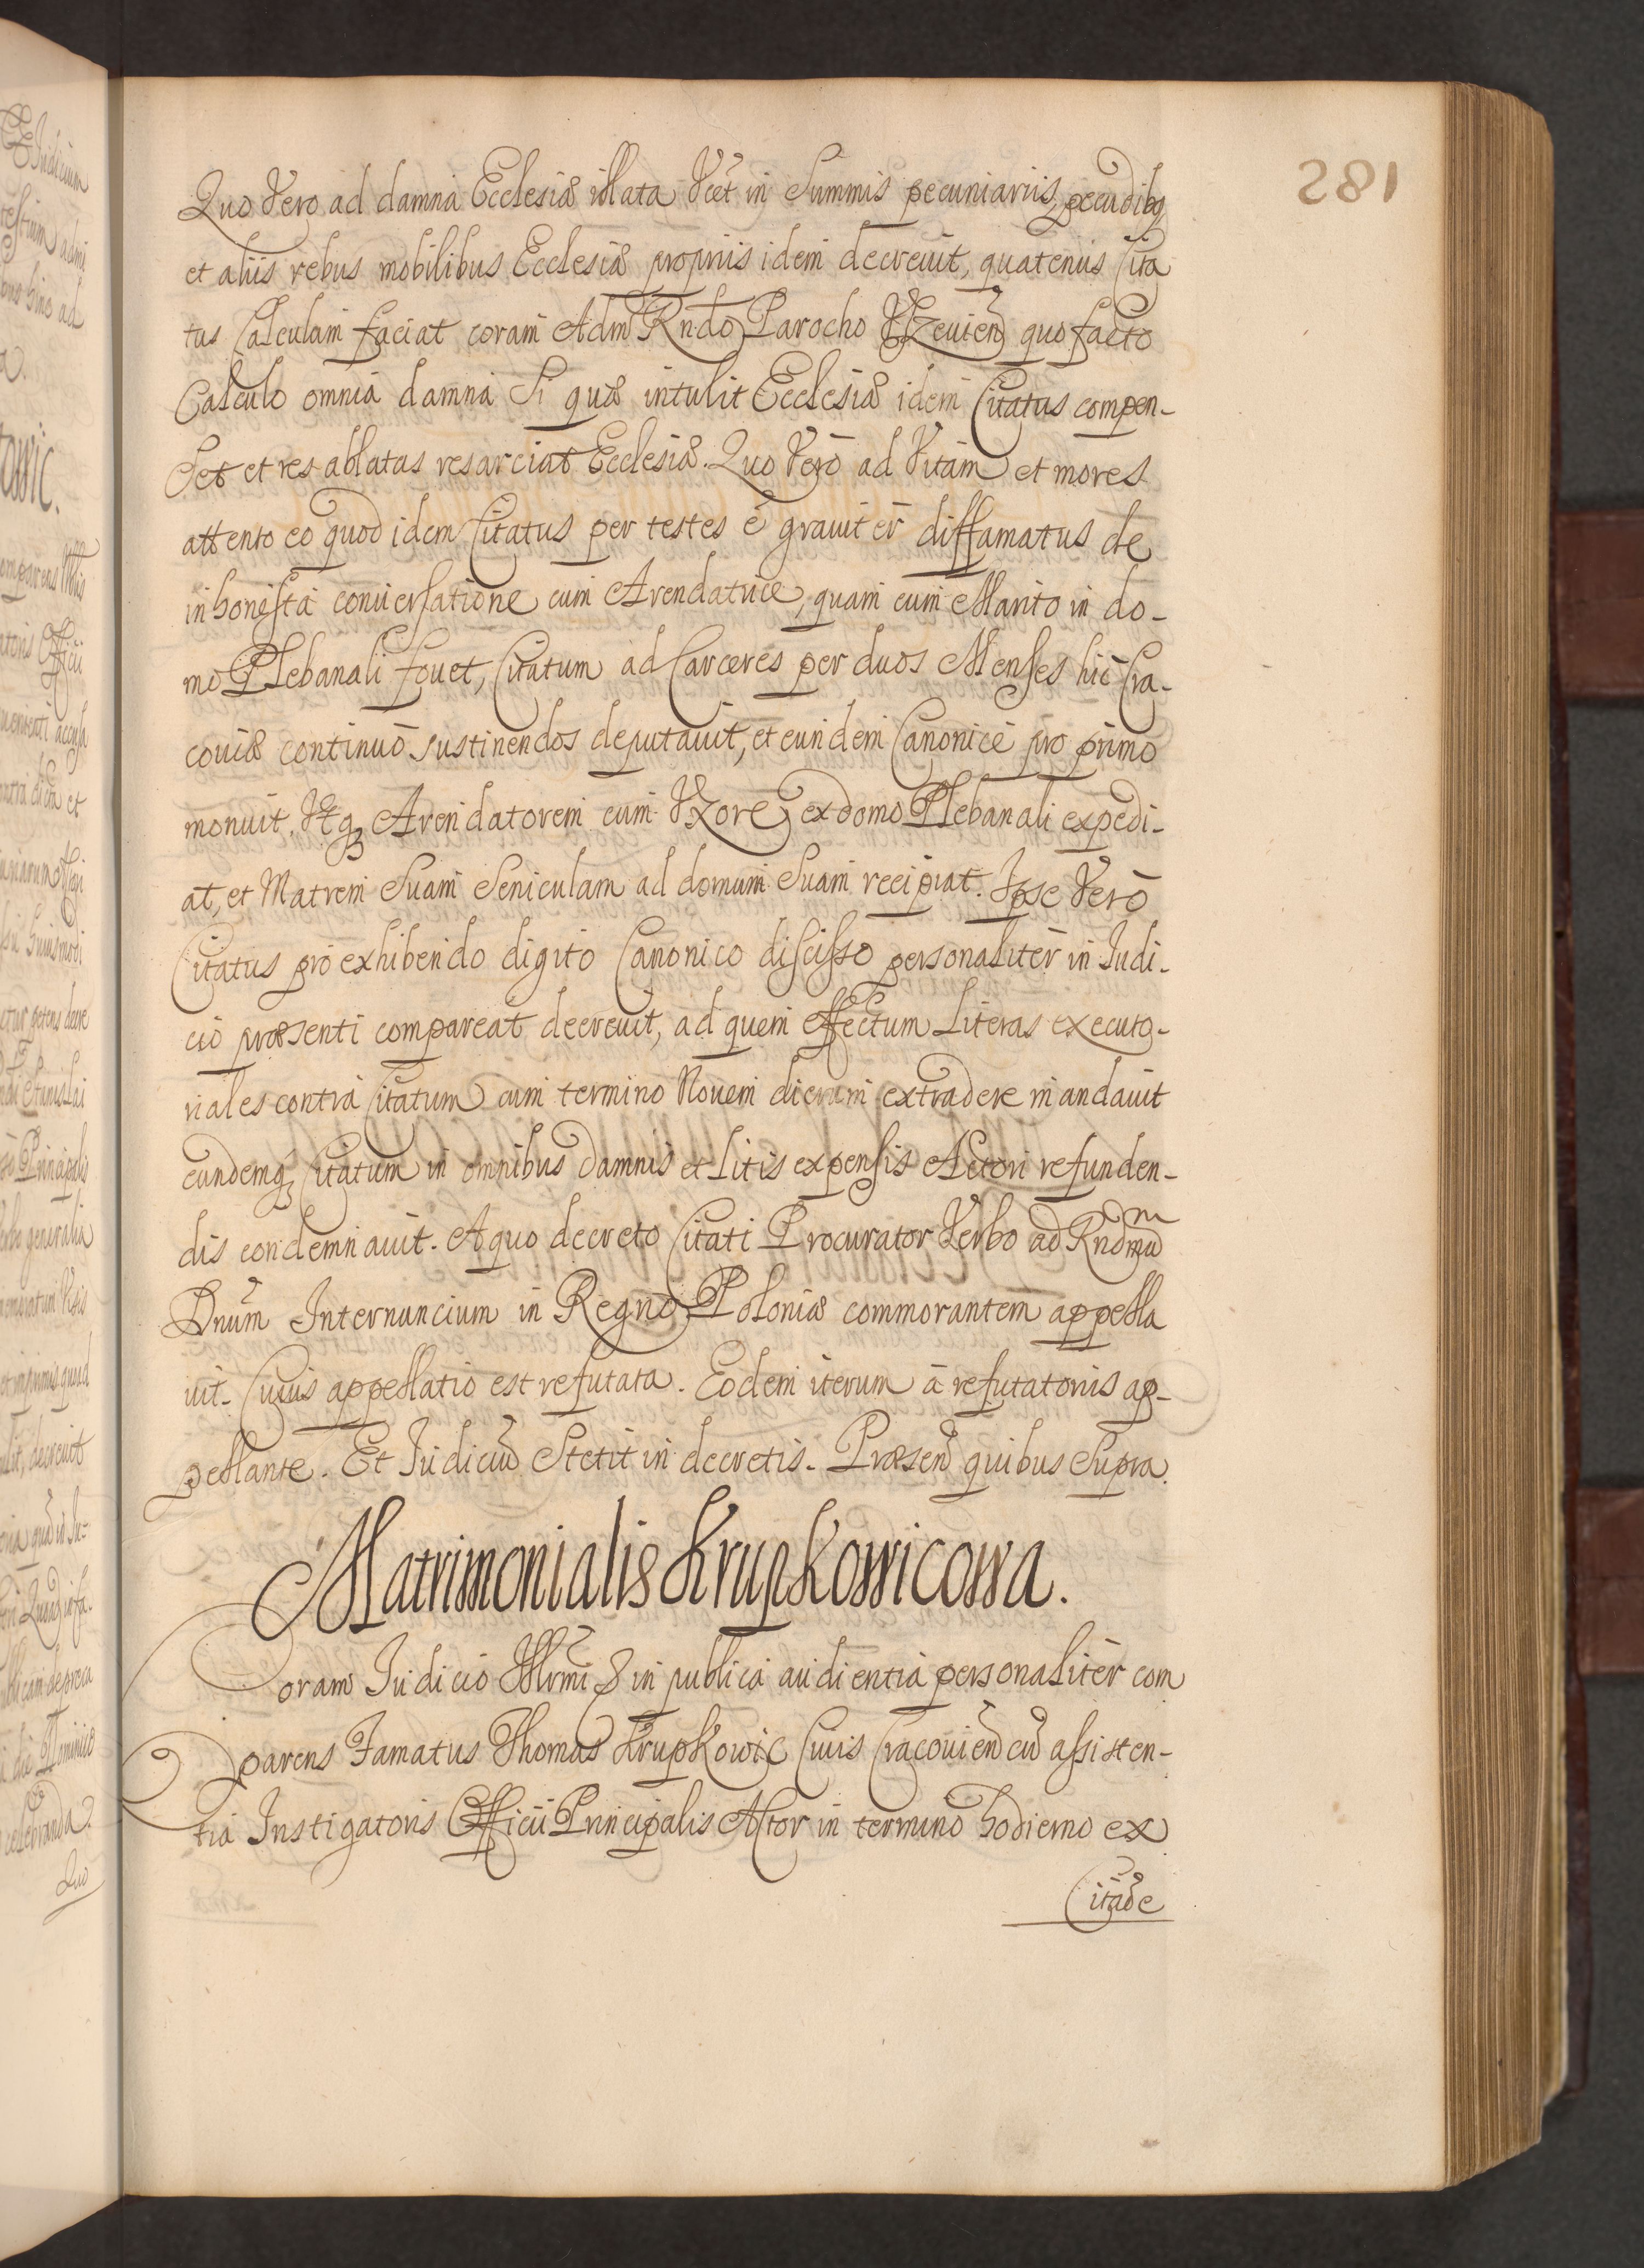 281
Quo Vero ad damna Ecclesiæ illata Vct in Summis pecuniariis, pecudibq
et aliis rebus mobilibus Ecclesiæ propriis idem decrevit, quatenus Cita
tus Calculum faciat coram Adm Rndo Parocho quo facto
Calculo omnia damna Si quæ intulit Ecclesiæ idem Citatus compen-
Set et res ablatas resarciat Ecclesiæ. Quo Vero ad Vitam et mores
attento eo quod idem Citatus per testes e graviter diffamatus de
inhonesta conversatione cum Arendatrice, quam cum Marito in do-
mo Plebanali fouet, Citatum ad Carceres per duos Menses hic Cra-
coviæ continuo sustinendos deputavit, et eundem Canonice pro primo
monuit. Vtq Arendatorem cum Vxore ex domo Plebanali expedi-
at, et Matrem Suam Seniculam ad domum Suam recipiat. Ipse Vero
Citatus pro exhibendo digito Canonico discisso personaliter in Judi-
cio præsenti compareat decrevit, ad quem effectum Literas executo-
riales contra Citatum cum termino Novem dierum extradere mandavit
eundemq Citatum in omnibus damnis et Litis expensis Actori refunden-
dis condemnavit. A quo decreto Citati Procurator Verbo ad Rndmu
Dnum Internuncium in Regno Poloniæ commorantem appella
vit. Cuius appellatio est refutata. Eodem iterum a refutatoriis ap-
pellante. Et Judiciu Stetit in decretis. Præsen quibus Supra.
Matrimonialis Krupkowicowa.
Coram Judicio Illrmi & in publica audientia personaliter com
parens Famatus Thomas Krupkowic Civis Cracovien cu assisten-
tia Instigatoris Officii Principalis Actor in termino hodierno ex
Citaõe